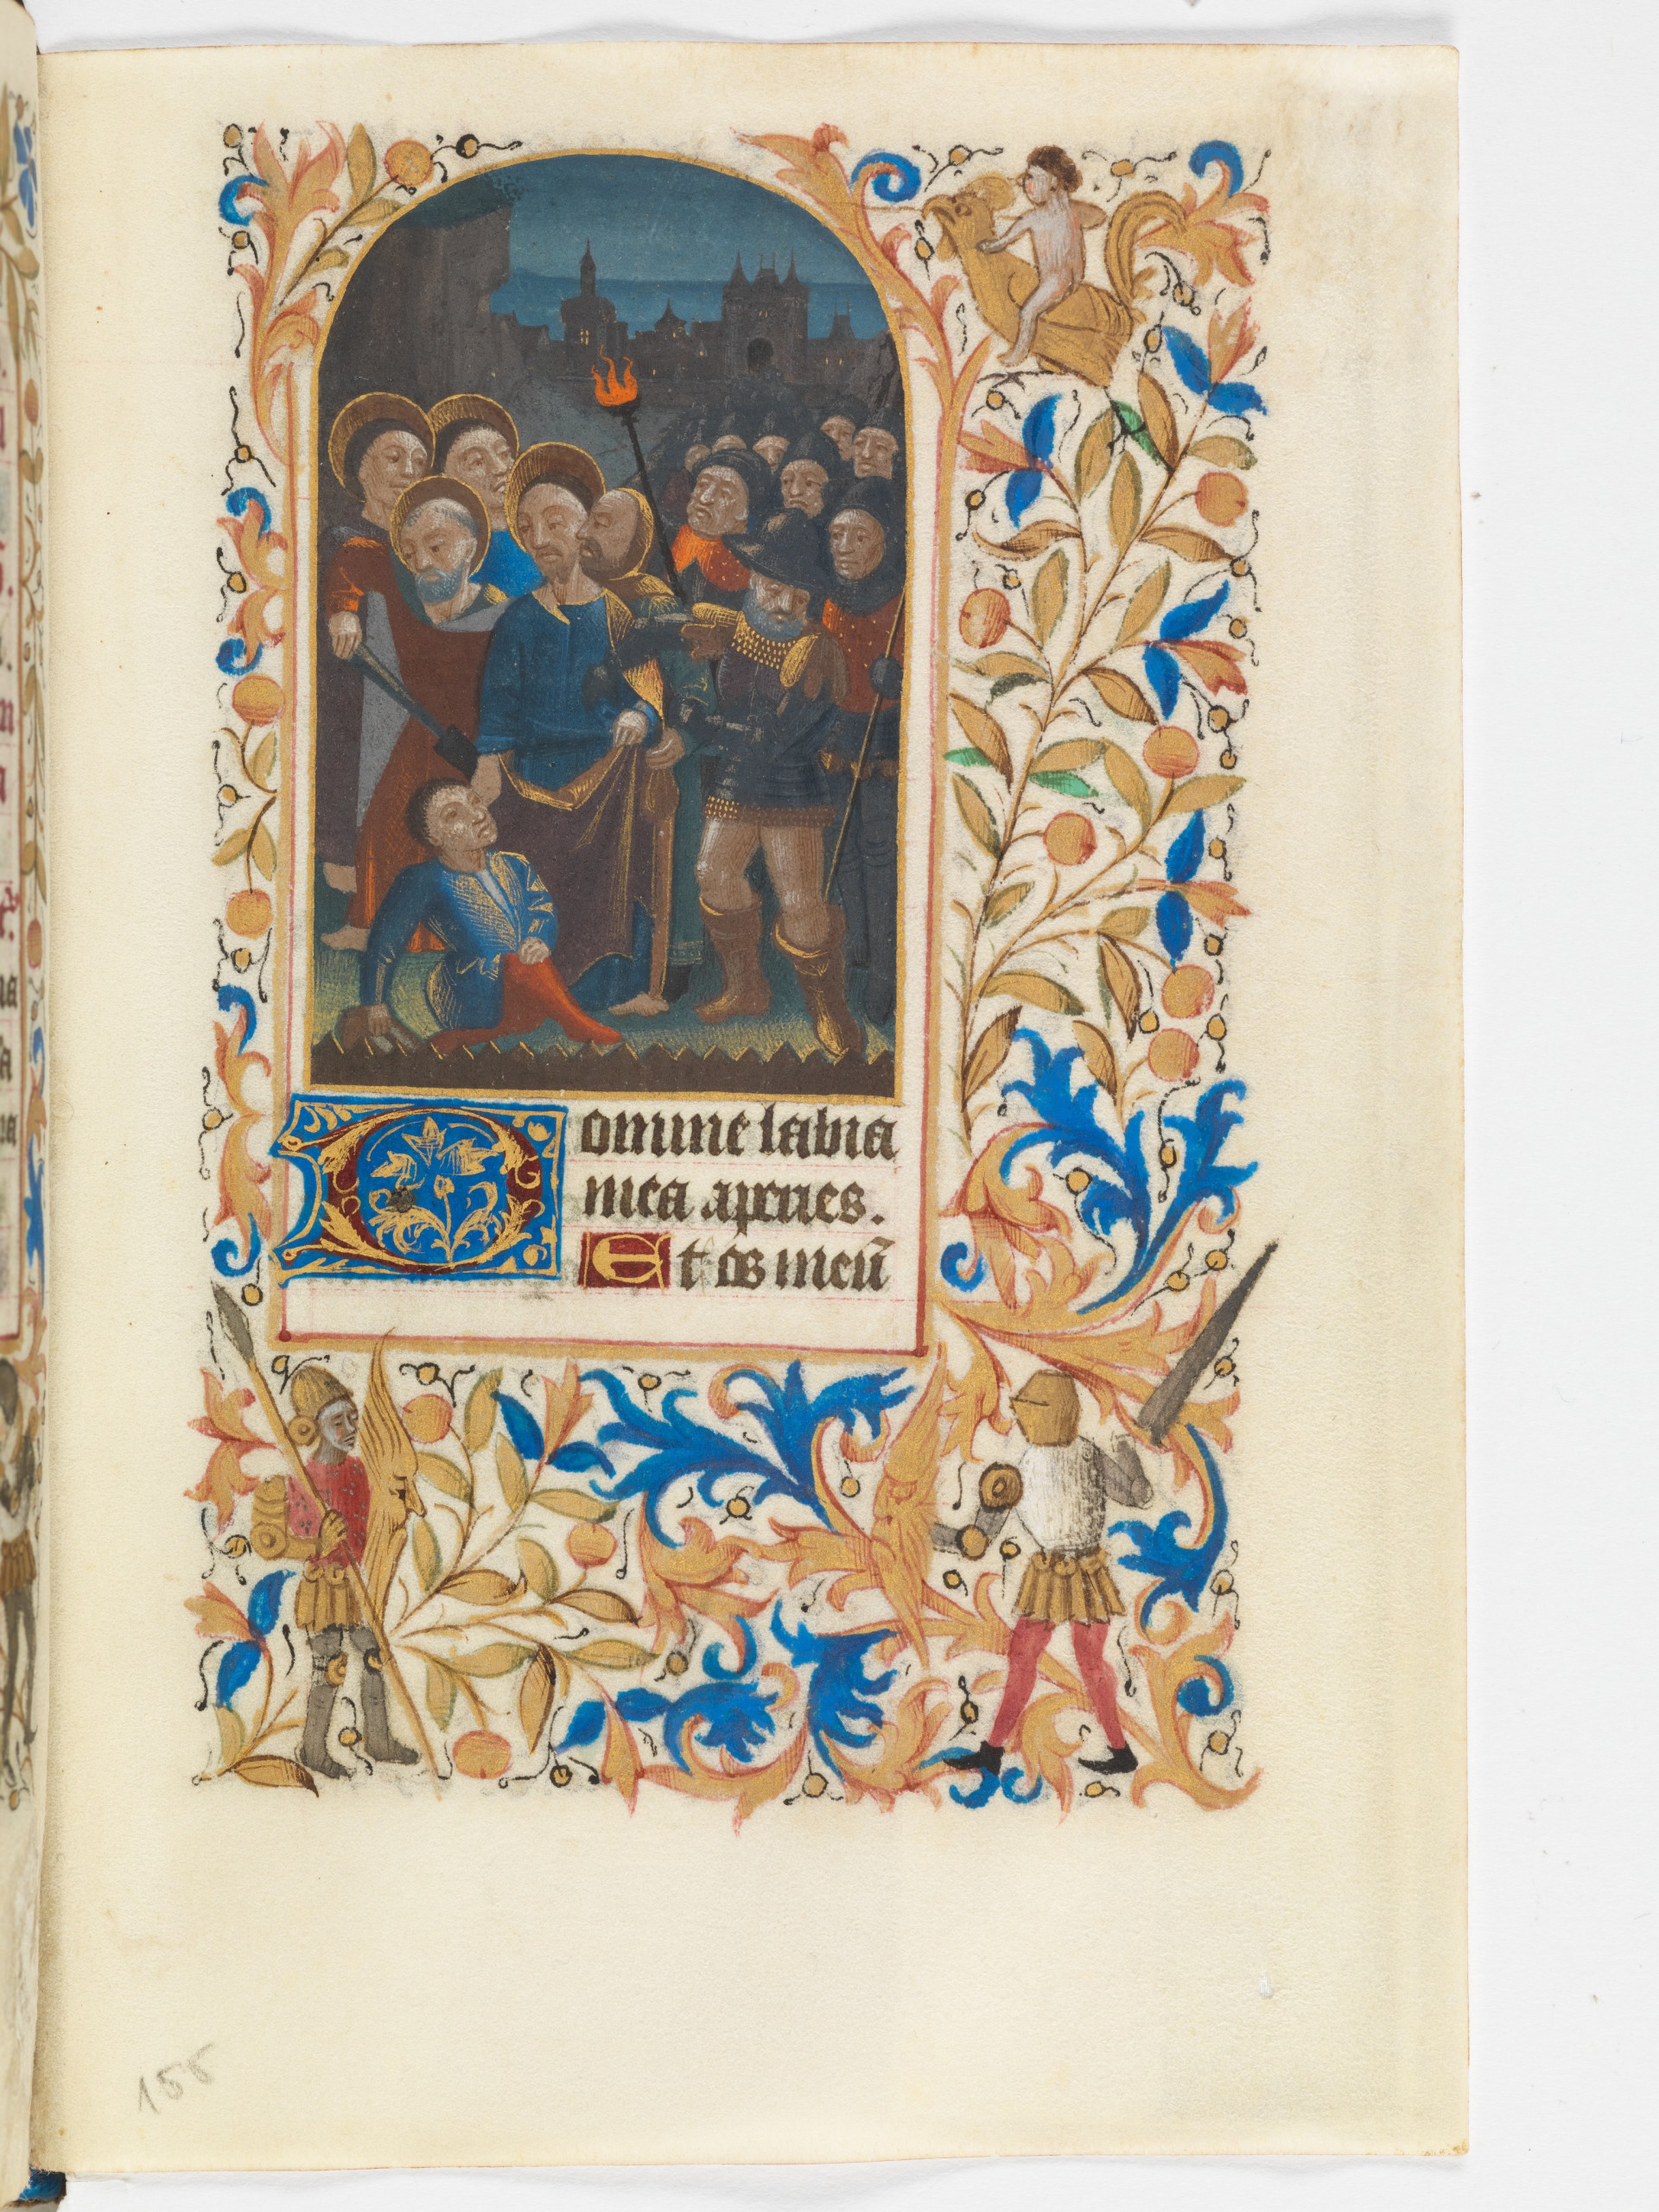 Domine labia
mea aperies.
Et os meū
155